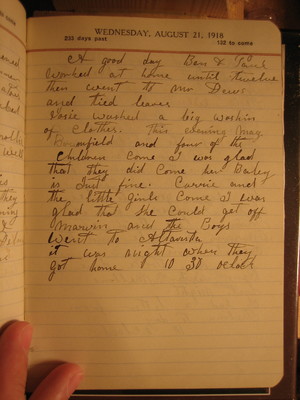 WEDNESDAY, AUGUST 21, 1918
233 days past 132 to come
A good day Ben &
worked at home until twelve
then went to Mr Dews
and tied leaves
Josie washed a big washin
of clothes. This evening Mag
Brumfield and four of the
children come I was glad
that they did come her Baby
is Just fine. Carrie and
the little girls come I was
glad that she could get off
Marvin and the Boys
went to Altavista
it was night when they
got home 10 30 oclock